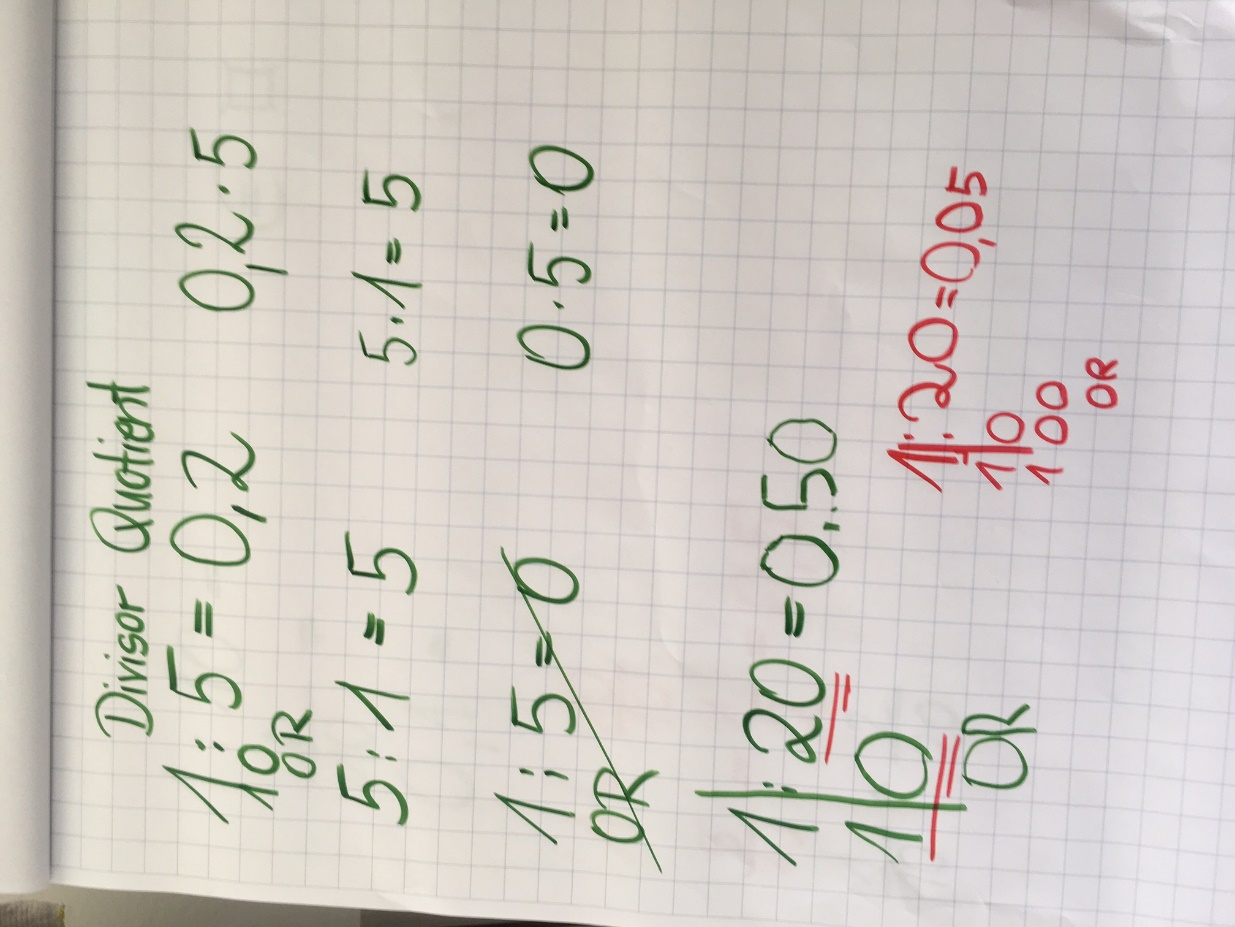 Divisor Quotient
1:5=0,2 0,2·5
10
OR
5:1=5 5·1=5
1:5=0 0·5=0
OR
1:20=0,50
10
OR
1:20=0,05
10
100
OR